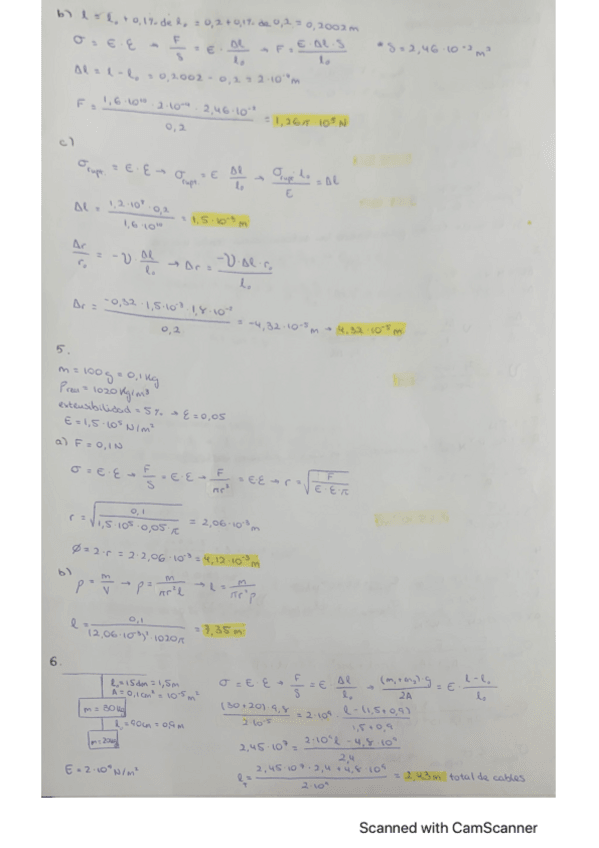 b) l = l₀ + 0,1% de l₀ = 0,2 + 0,1% de 0,2 = 0,2002 m
σ = E · ε → F/S = E · Δl/l₀ → F = E · Δl · S / l₀ * S = 2,46 · 10⁻² m²
Δl = l - l₀ = 0,2002 - 0,2 = 2 · 10⁻⁴ m
F = 1,6 · 10¹⁰ · 2 · 10⁻⁴ · 2,46 · 10⁻³ / 0,2 = 1,26π · 10⁵ N
c)
σrupt = E · ε → σrupt = E Δl/l₀ → σrupt · l₀ / E = Δl
Δl = 1,2 · 10⁸ · 0,2 / 1,6 · 10¹⁰ = 1,5 · 10⁻³ m
Δr/r₀ = -ν · Δl/l₀ → Δr = -ν · Δl · r₀ / l₀
Δr = -0,32 · 1,5 · 10⁻³ · 1,8 · 10⁻² / 0,2 = -4,32 · 10⁻⁵ m → 4,32 · 10⁻⁵ m
5.
m = 100 g = 0,1 Kg
= 1020 Kg/m³
extensibilidad = 5% → ε = 0,05
E = 1,5 · 10⁵ N/m²
a) F = 0,1 N
σ = E · ε → F/S = E · ε → F/πr² = E ε → r = √(F / E · ε · π)
r = √(0,1 / 1,5 · 10⁵ · 0,05 · π) = 2,06 · 10⁻³ m
Ø = 2 · r = 2 · 2,06 · 10⁻³ = 4,12 · 10⁻³ m
b)
ρ = m/V → ρ = m/πr²l → l = m/πr²ρ
l = 0,1 / (2,06 · 10⁻³)² · 1020π = 7,35 m
6.
l₀ = 15 dm = 1,5 m
A = 0,1 cm² = 10⁻⁵ m²
m = 30 Kg
l₀ = 90 cm = 0,9 m
m = 20 Kg
E = 2 · 10⁹ N/m²
σ = E · ε → F/S = E · Δl/l₀ → (m₁ + m₂) · g / 2A = E · l - l₀ / l₀
(30 + 20) · 9,8 / 2 · 10⁻⁵ = 2 · 10⁹ · l - (1,5 + 0,9) / 1,5 + 0,9
2,45 · 10⁷ = 2 · 10⁹ l - 4,8 · 10⁹ / 2,4
= 2,45 · 10⁷ · 2,4 + 4,8 · 10⁹ / 2 · 10⁹ = 2,43 m total de cables
Scanned with CamScanner